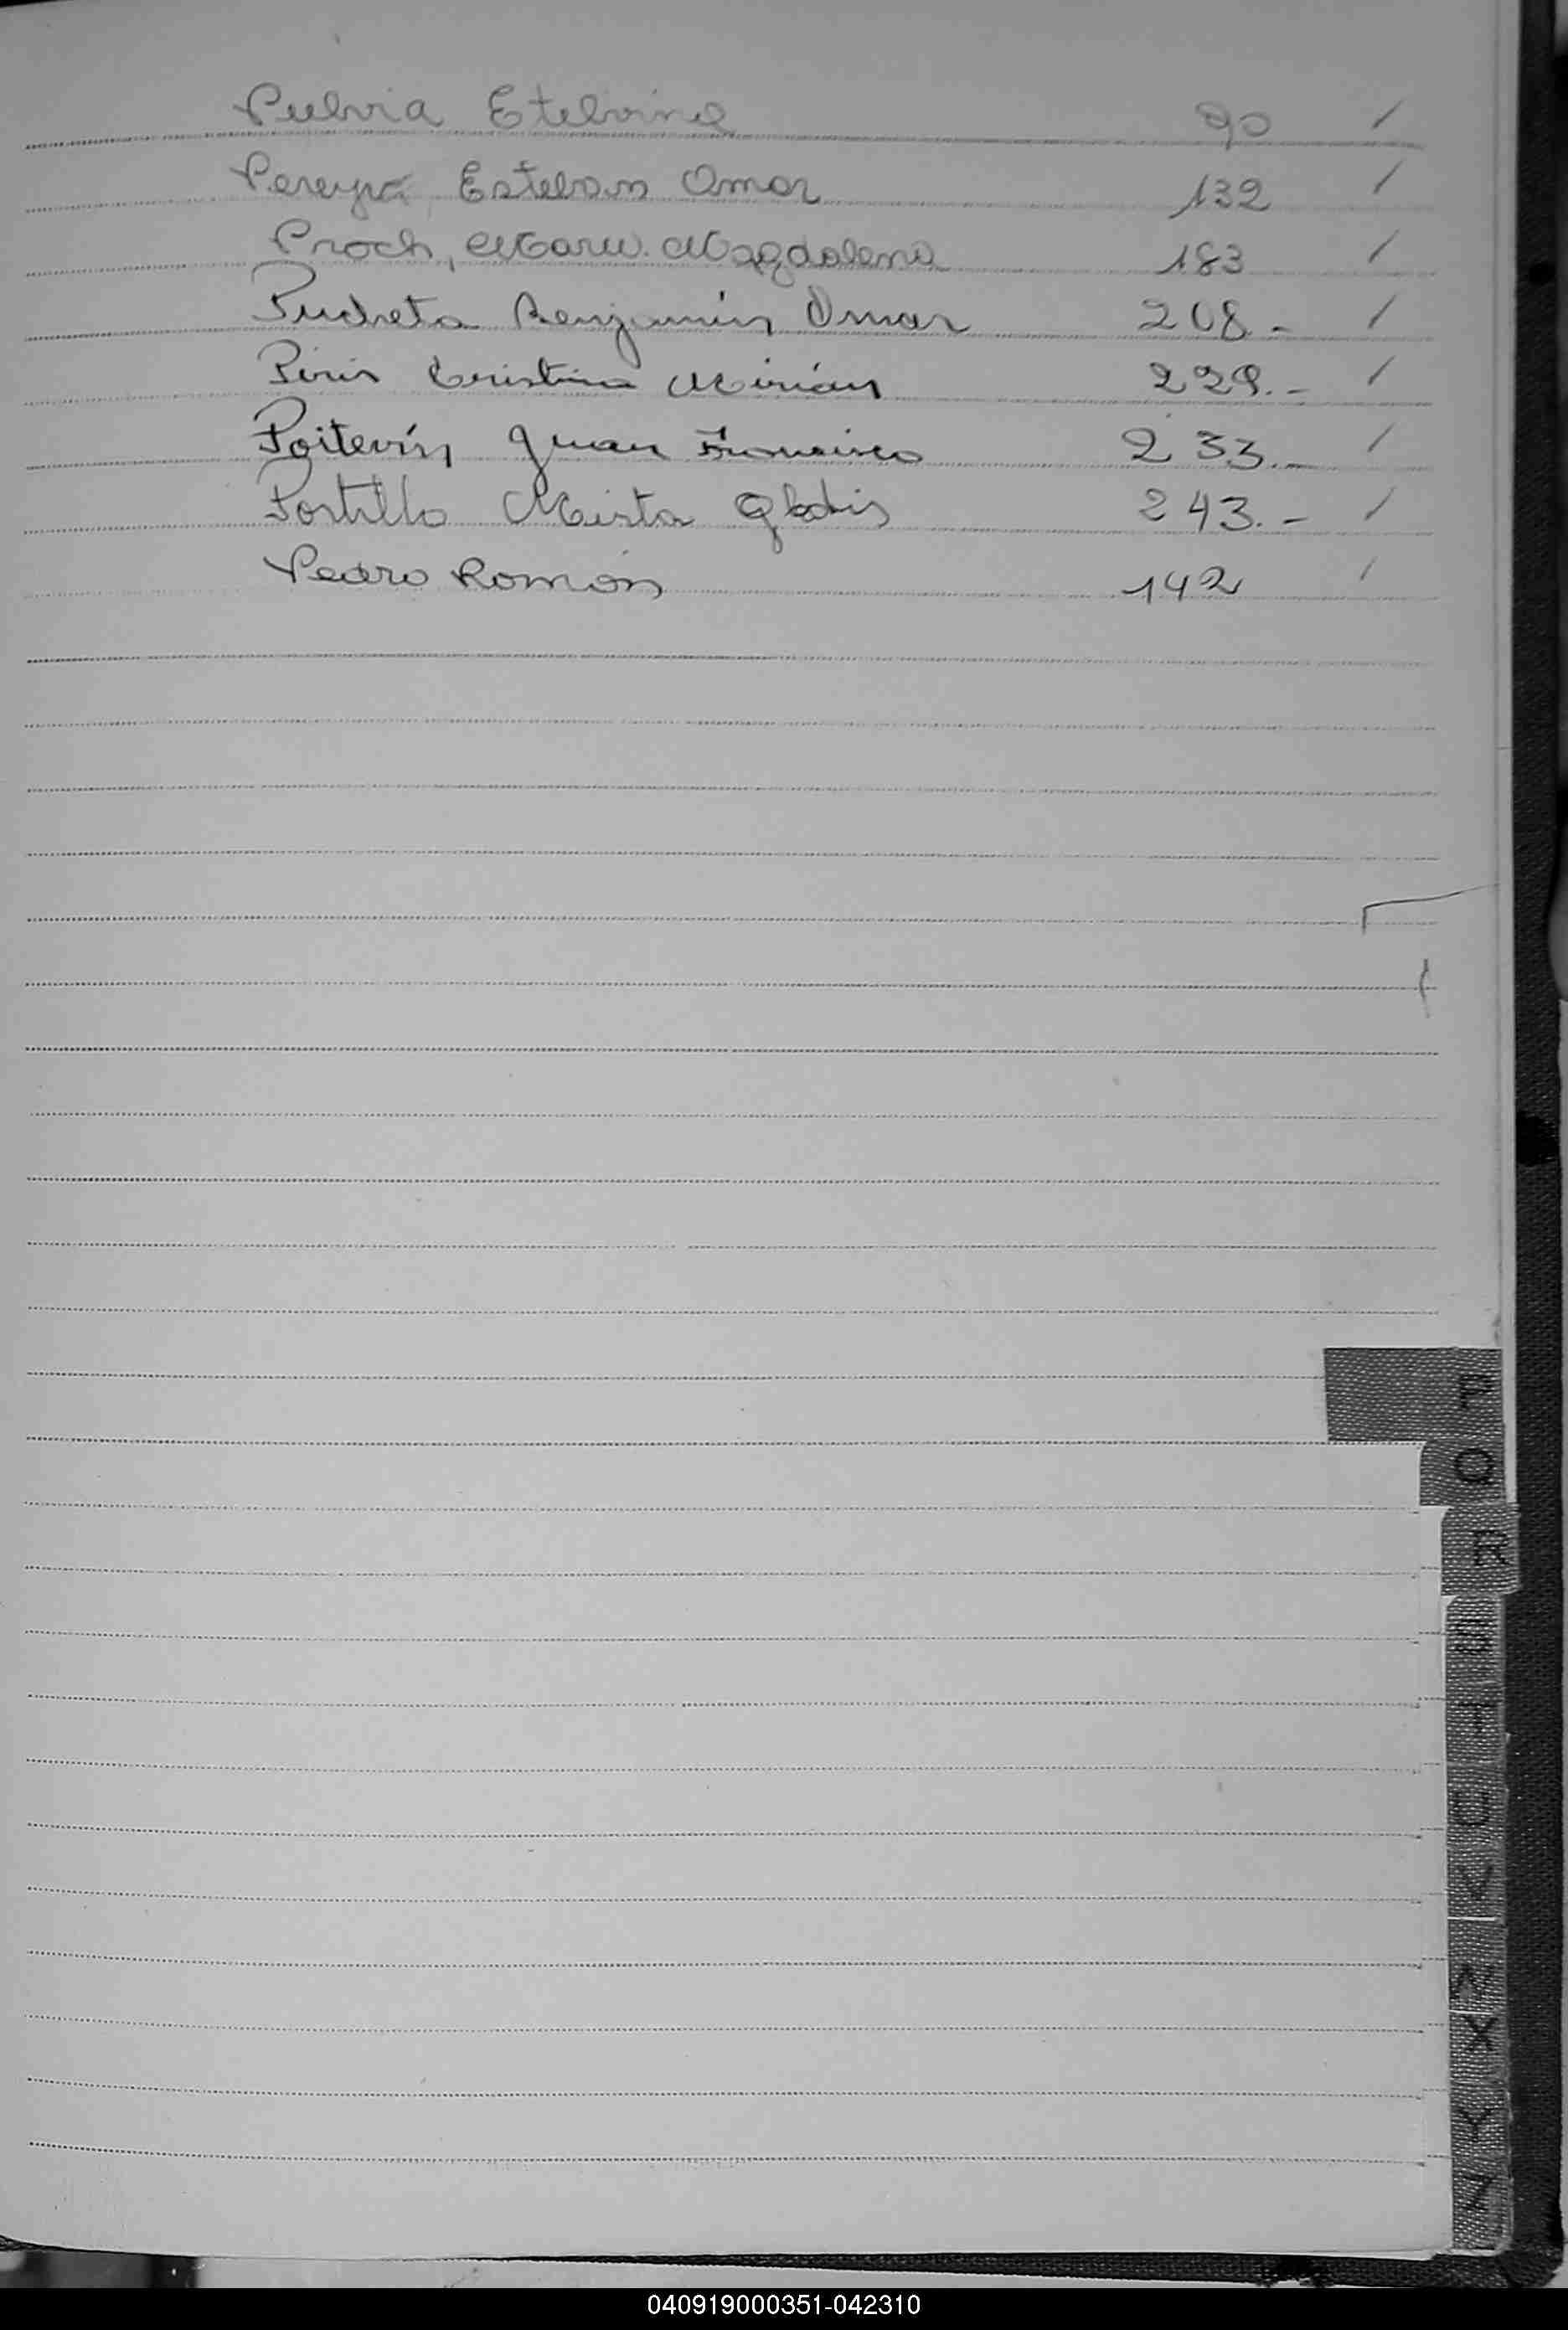 Pulvia Etelvina 90 /
Pereyra, Esteban Omar 132 /
Proch, María Magdalena 183 /
Pucheta Benjamín Omar 208.- /
Piris Cristina Mirián 229.- /
Poitevín Juan Francisco 233.- /
Portillo Mirta Gladis 243.- /
Pedro Román 142 /
P
Q
R
S
T
U
V
W
X
Y
Z
040919000351-042310